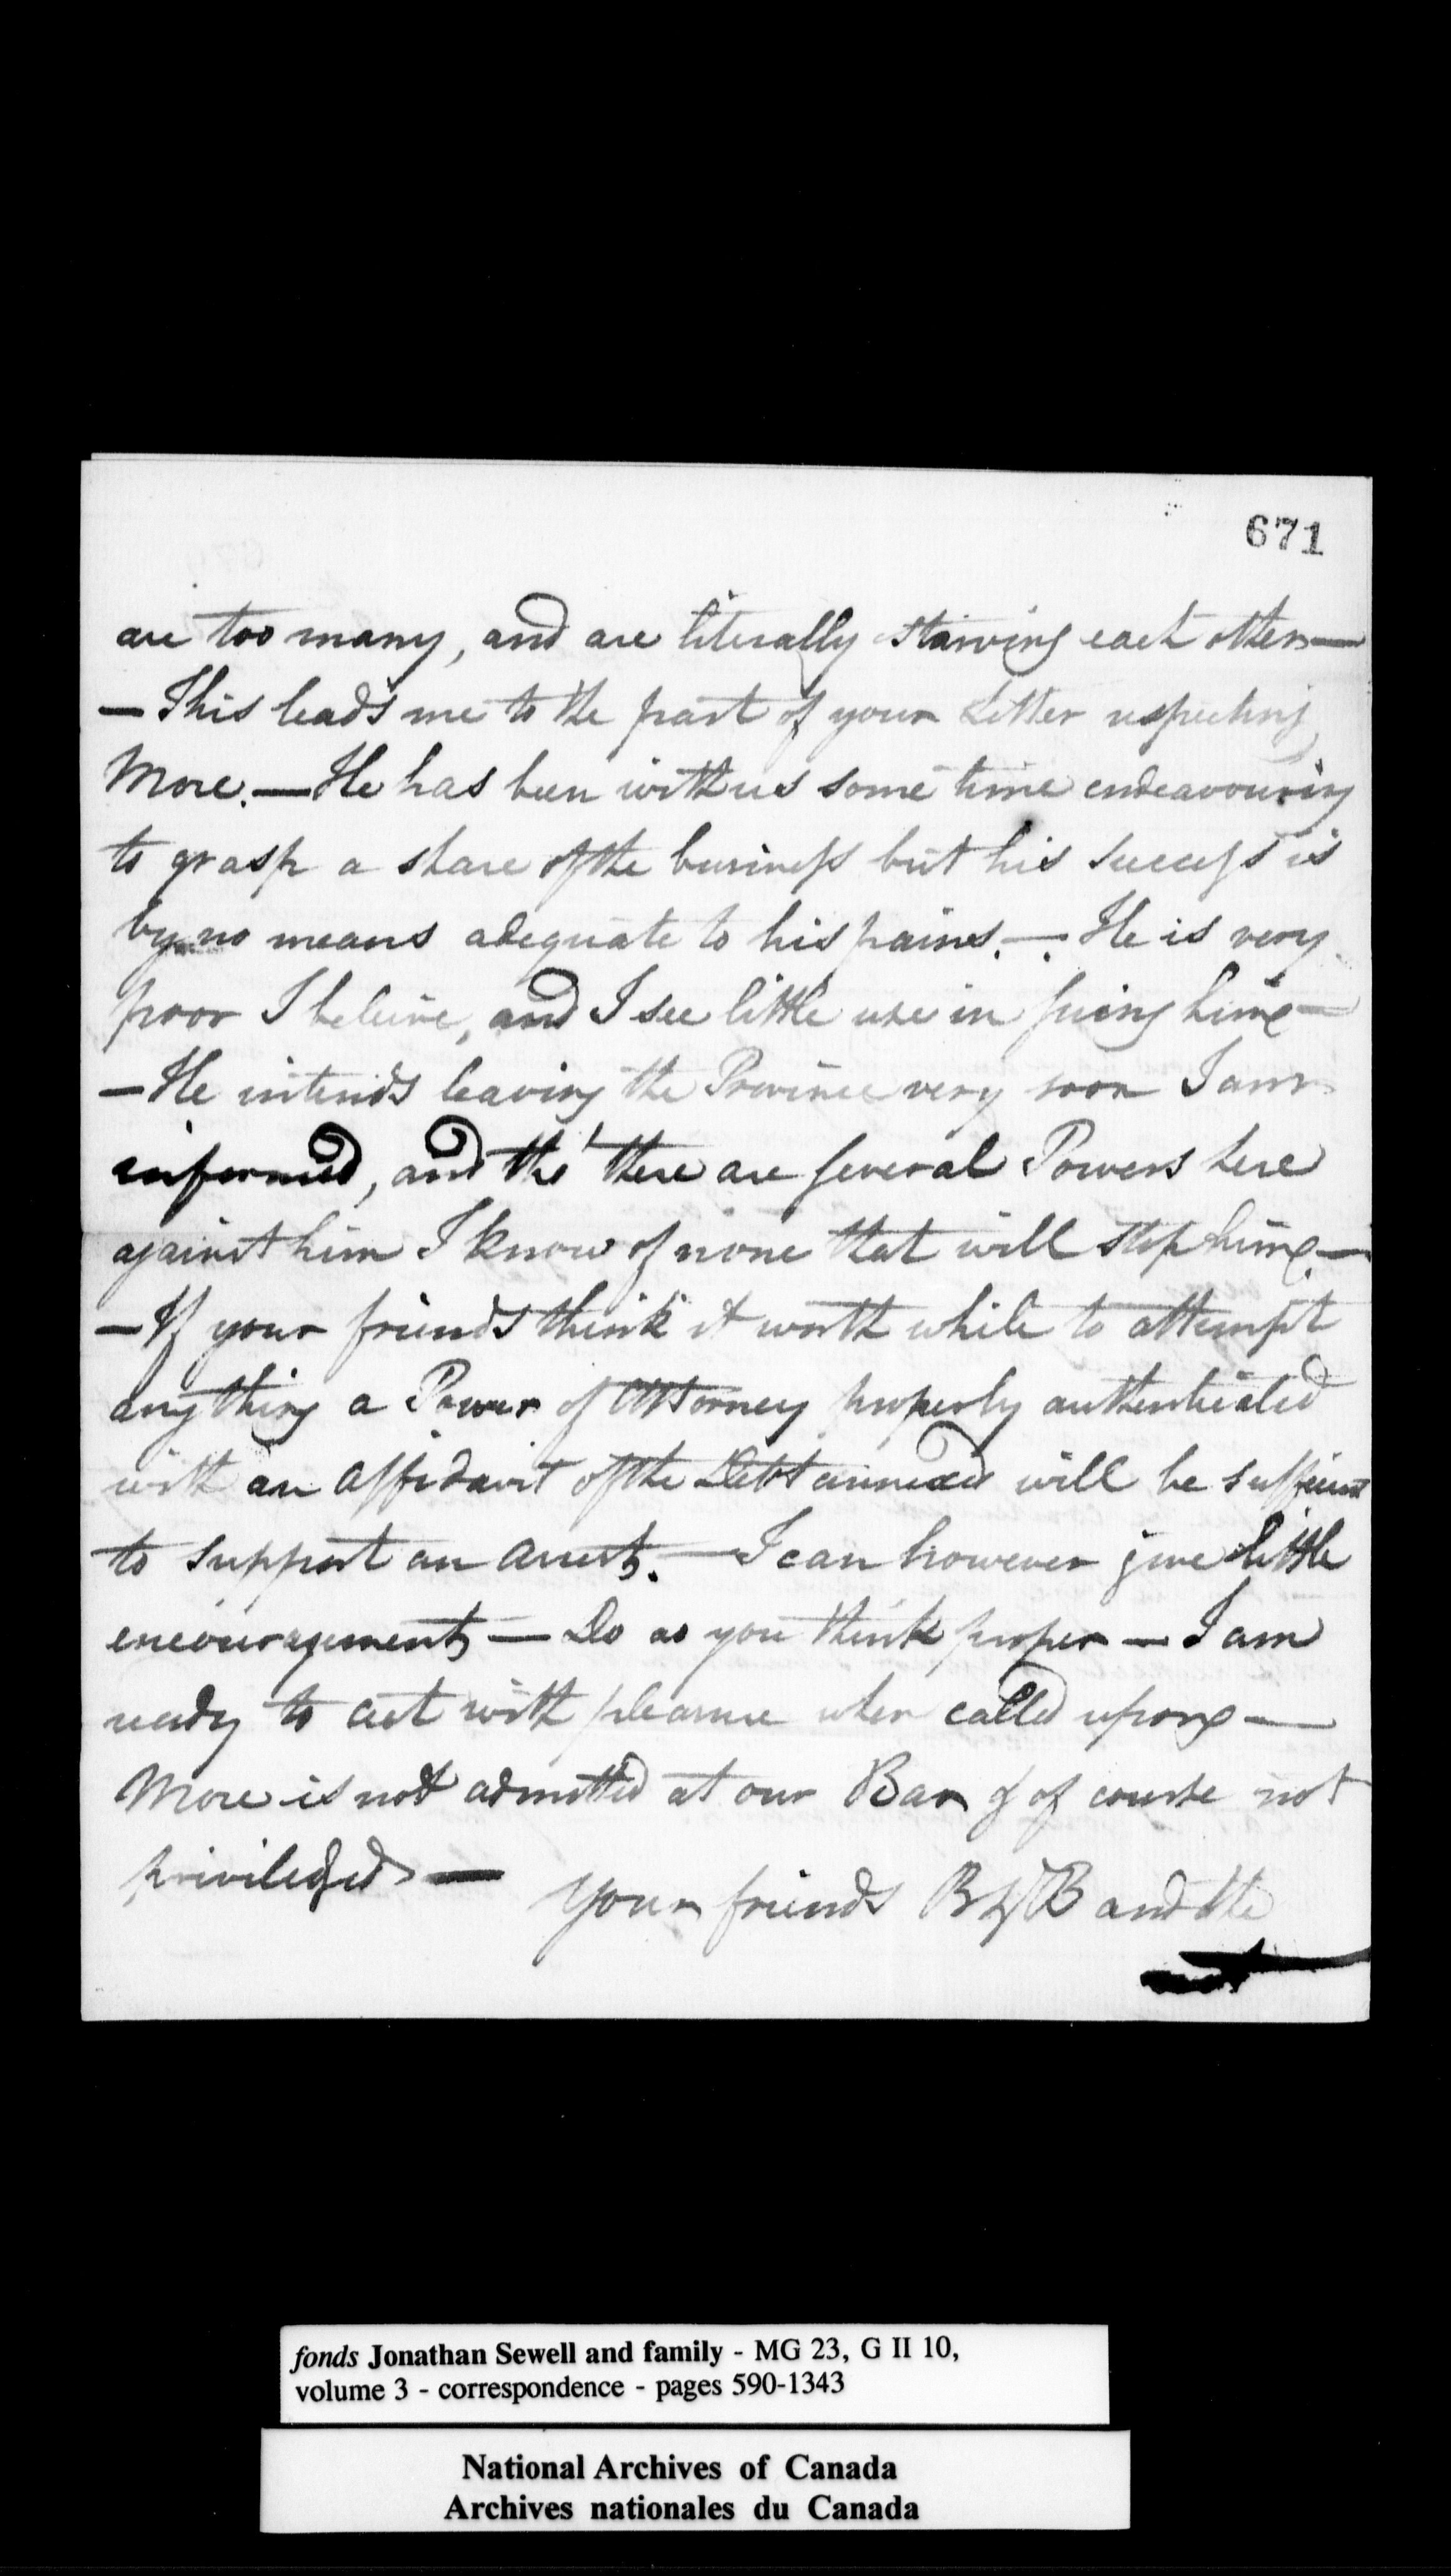 671
are too many, and are literally starving each other —
— This leads me to the part of your Letter respecting
More. — He has been with us some time endeavouring
to grasp a share of the business but his success is
by no means adequate to his pains. — . He is very
poor I beleive, and I see little use in suing him —
— He intends leaving the Province very soon I am
informed, and tho' there are several Powers here
against him I know of none that will stop him. —
— If your friends think it worth while to attempt
any thing a Power of Attorney properly authenticated
with an affidavit of the Debt annexed will be sufficient
to support an arrest. — I can however give little
encouragement, — Do as you think proper — I am
ready to act with pleasure when called upon —
More is not admitted at our Bar & of course not
priviledged —
Your friends B & B and the
fonds Jonathan Sewell and family - MG 23, G II 10,
volume 3 - correspondence - pages 590-1343
National Archives of Canada
Archives nationales du Canada